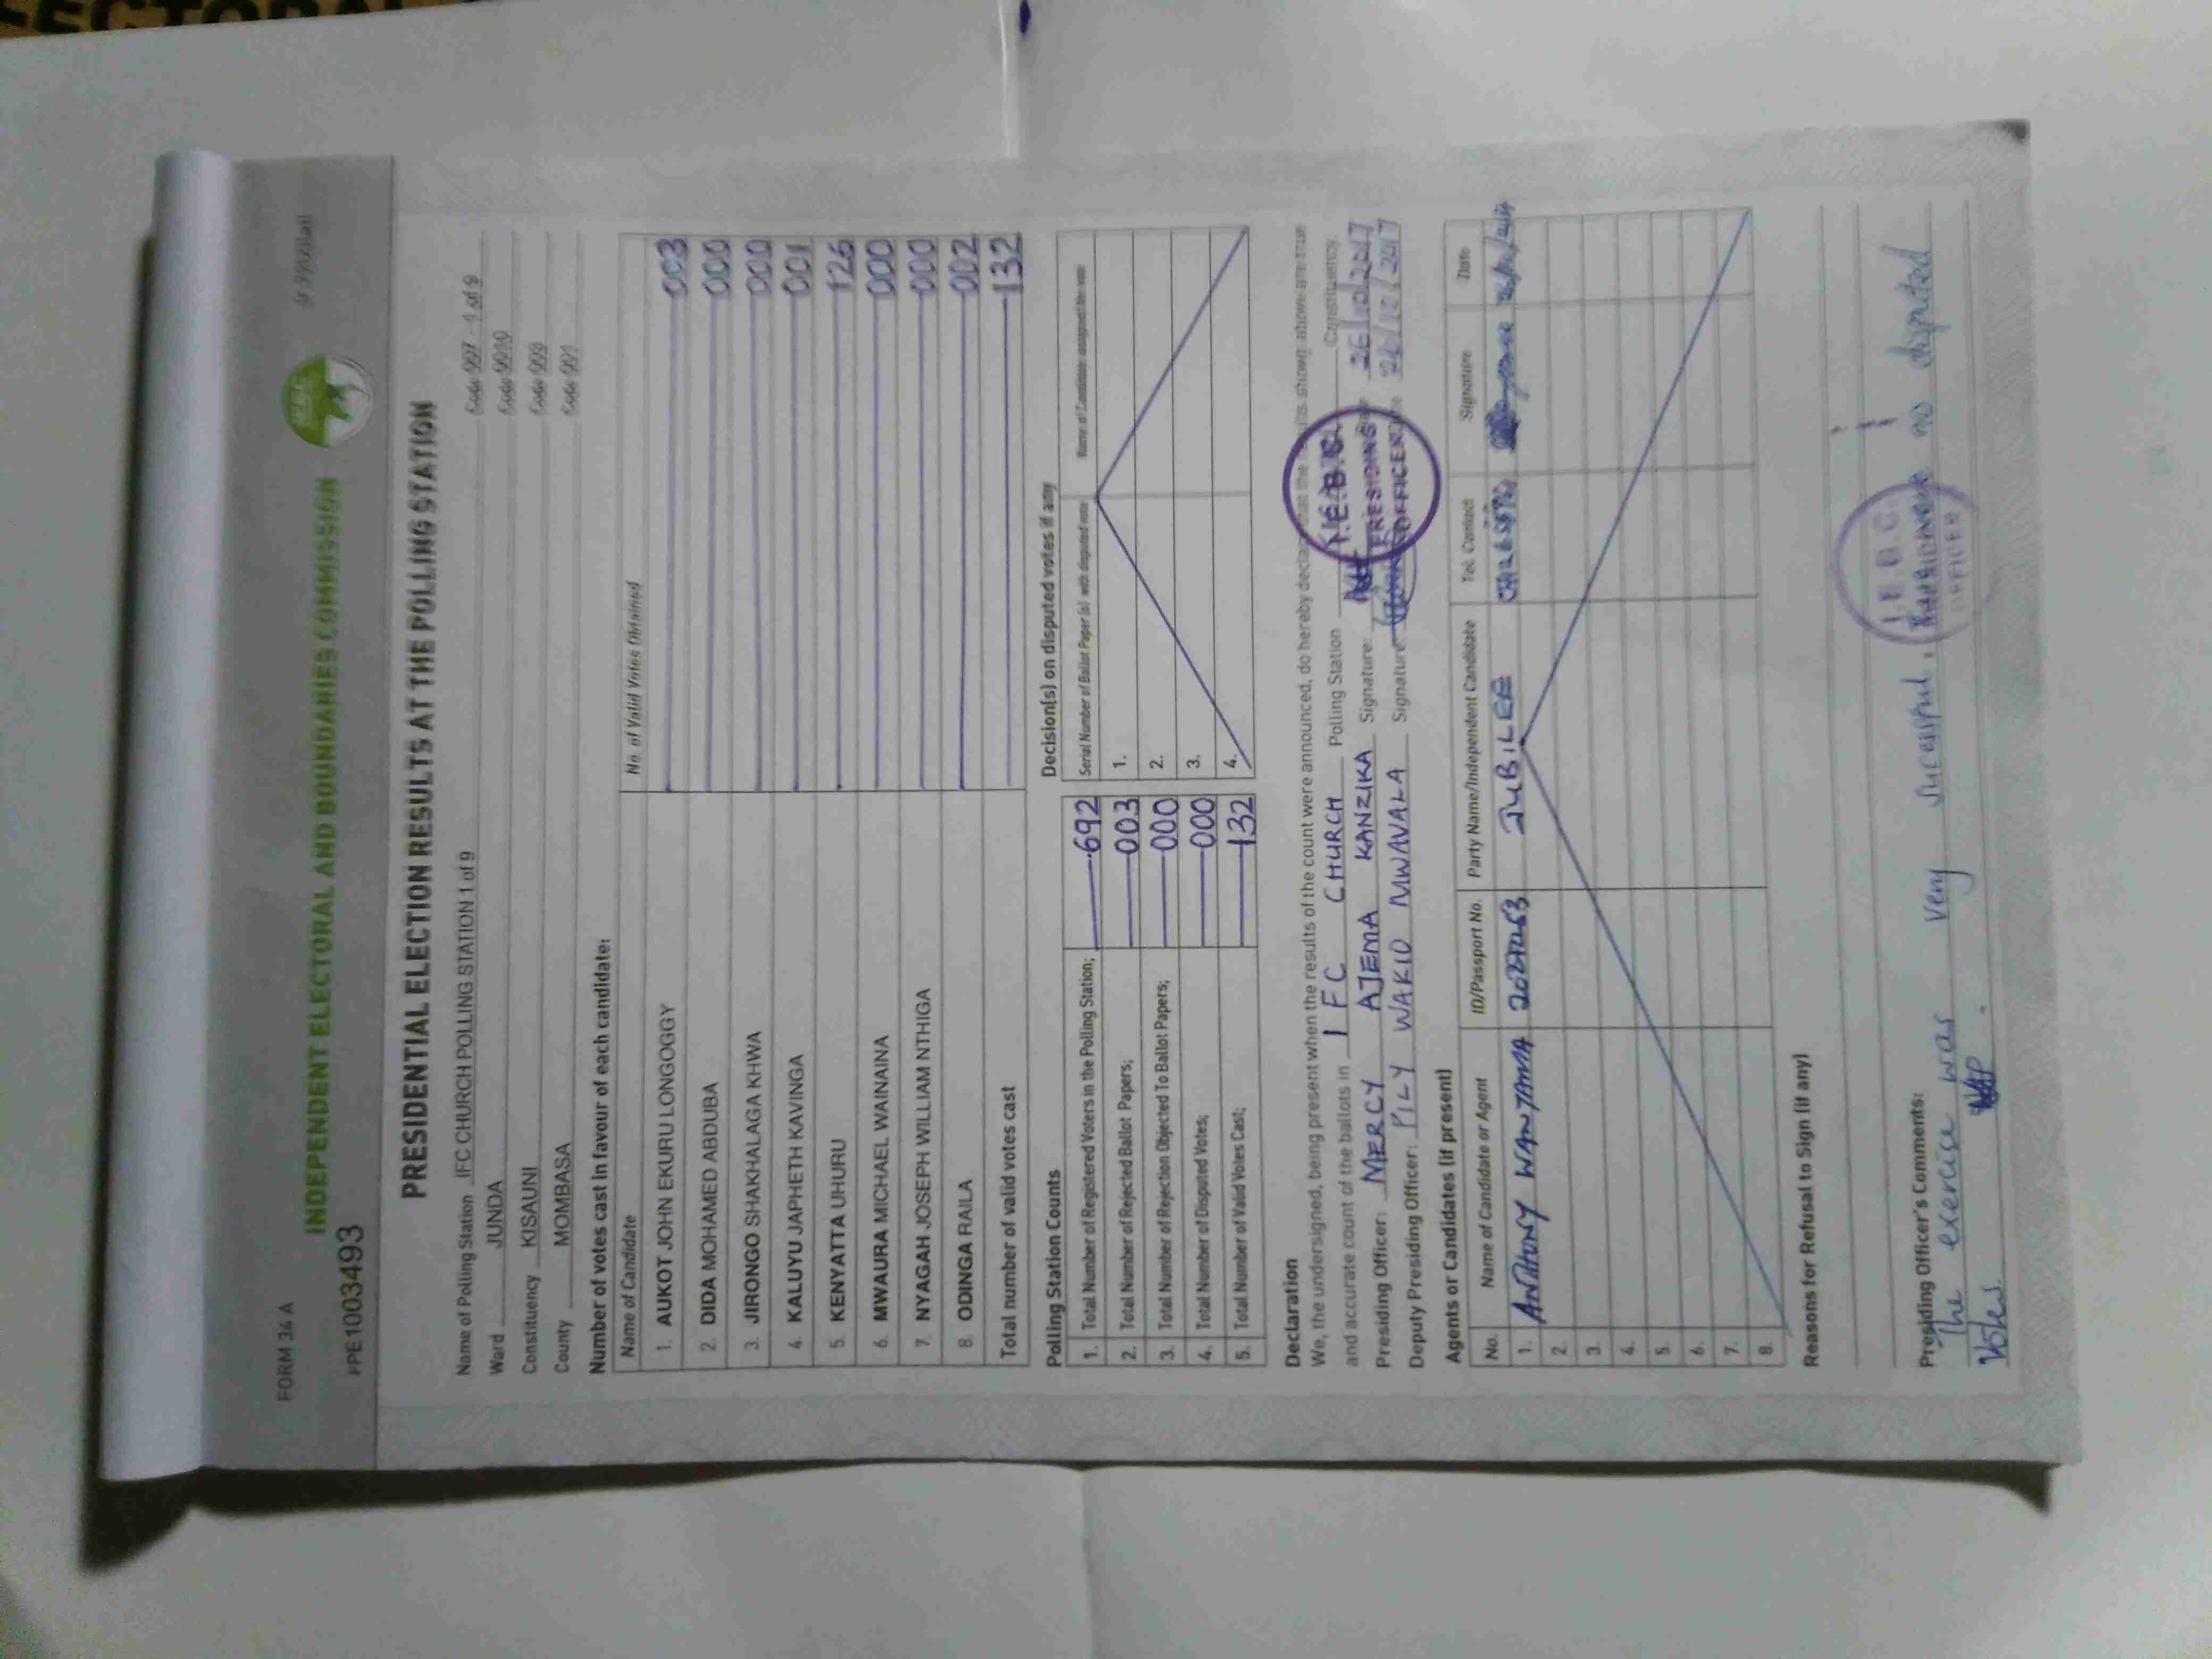 ECTORAL
FORM 34 A
INDEPENDENT ELECTORAL AND BOUNDARIES COMMISSION
I.E.B.C
PPE1003493
PRESIDENTIAL ELECTION RESULTS AT THE POLLING STATION
Name of Polling Station IFC CHURCH POLLING STATION 1 of 9 Code 997 - 1 of 9
Ward JUNDA Code
Constituency KISAUNI Code
County MOMBASA Code 001
Number of votes cast in favour of each candidate:
Name of Candidate No. of Valid Votes Obtained
1. AUKOT JOHN EKURU LONGOGGY 003
2. DIDA MOHAMED ABDUBA 000
3. JIRONGO SHAKHALAGA KHWA 000
4. KALUYU JAPHETH KAVINGA 001
5. KENYATTA UHURU 126
6. MWAURA MICHAEL WAINAINA 000
7. NYAGAH JOSEPH WILLIAM NTHIGA 000
8. ODINGA RAILA 002
Total number of valid votes cast 132
Polling Station Counts Decision(s) on disputed votes if any
Serial Number of Ballot Paper (s) with disputed vote Name of Candidate assigned the vote
1. Total Number of Registered Voters in the Polling Station; 692 1.
2. Total Number of Rejected Ballot Papers; 003 2.
3. Total Number of Rejection Objected To Ballot Papers; 000 3.
4. Total Number of Disputed Votes; 000 4.
5. Total Number of Valid Votes Cast; 132
Declaration
We, the undersigned, being present when the results of the count were announced, do hereby declare that the results shown above are true
and accurate count of the ballots in IFC CHURCH Polling Station Constituency.
Presiding Officer: MERCY AJEMA KANZIKA Signature: Date 26/10/2017
Deputy Presiding Officer: PILY WAKIO MWAVALA Signature: Date 26/10/2017
I.E.B.C.
PRESIDING
OFFICER
Agents or Candidates (if present)
No. Name of Candidate or Agent ID/Passport No. Party Name/Independent Candidate Tel. Contact Signature Date
1. ANTHONY JUBILEE
2.
3.
4.
5.
6.
7.
8.
Reasons for Refusal to Sign (if any)
Presiding Officer's Comments:
The exercise was very successful, no disputed
Votes.
I.E.B.C.
OFFICER